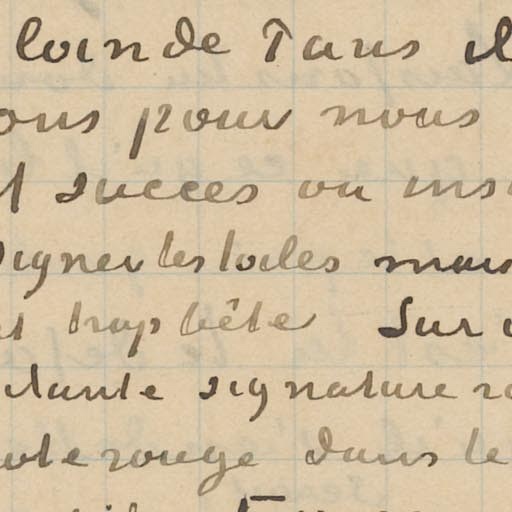 loin de Paris il
ous pour nous
succes ou ins
signer les toiles mais
trop bête Sur
tante signature ro
note rouge dans le